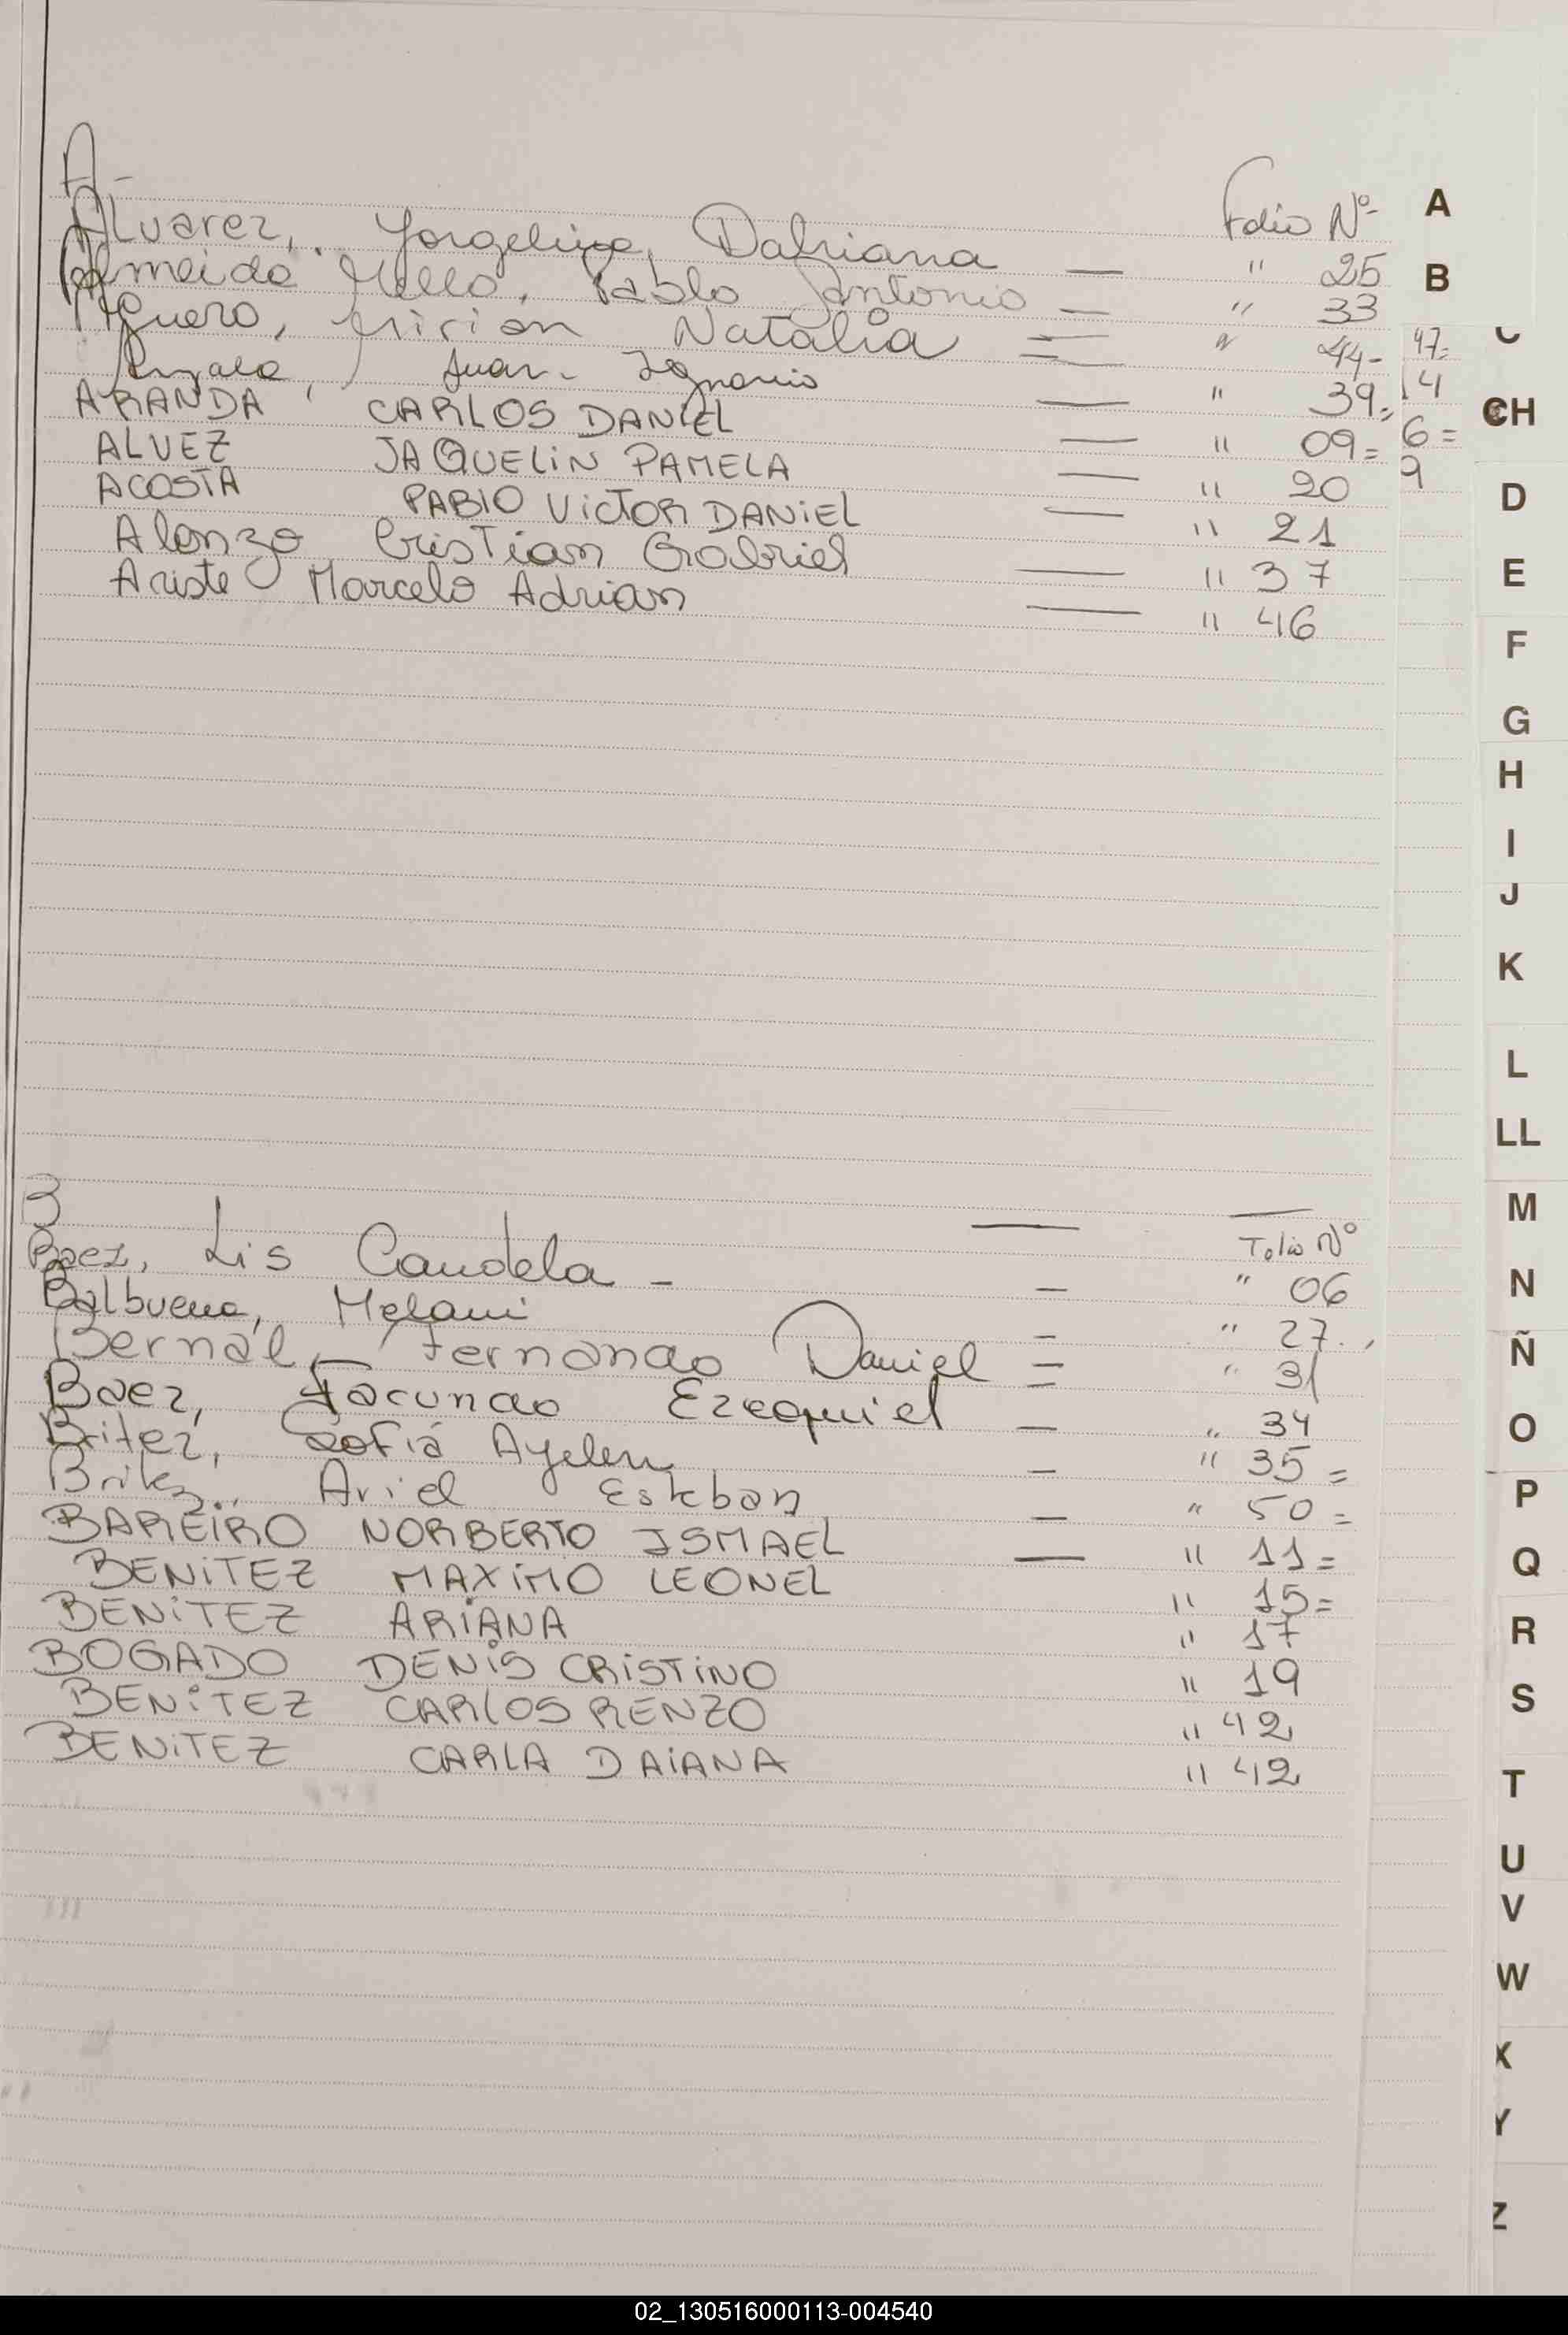 A-
Folio Nº-
Alvarez, Yorgelina, Dahiana — " 25
Almeida Mello, Pablo Antonio — " 33
Aguero, Mirian Natalia = " 44-
Juan Ignacio — " 39=
ARANDA CARLOS DANIEL — " 09=
ALVEZ JAQUELIN PAMELA — " 20
ACOSTA PABLO VICTOR DANIEL — " 21
Alonzo Cristian Gabriel — " 37
Ariste Marcelo Adrian — " 46
47=
14
6=
9
A
B
C
CH
D
E
F
G
H
I
J
K
L
LL
M
N
Ñ
O
P
Q
R
S
T
U
V
W
X
Y
Z
B
Folio Nº
Baez, Lis Candela - — " 06
Balbuena, Melani — " 27.
Bernal, Fernando Daniel = " 31
Baez, Facundo Ezequiel — " 34
Britez, Sofia Ayelen — " 35=
Britez, Ariel Esteban — " 50=
BAREIRO NORBERTO ISMAEL — " 11=
BENITEZ MAXIMO LEONEL " 15=
BENITEZ ARIANA " 17
BOGADO DENIS CRISTINO " 19
BENITEZ CARLOS RENZO " 42
BENITEZ CARLA DAIANA " 42
02_130516000113-004540